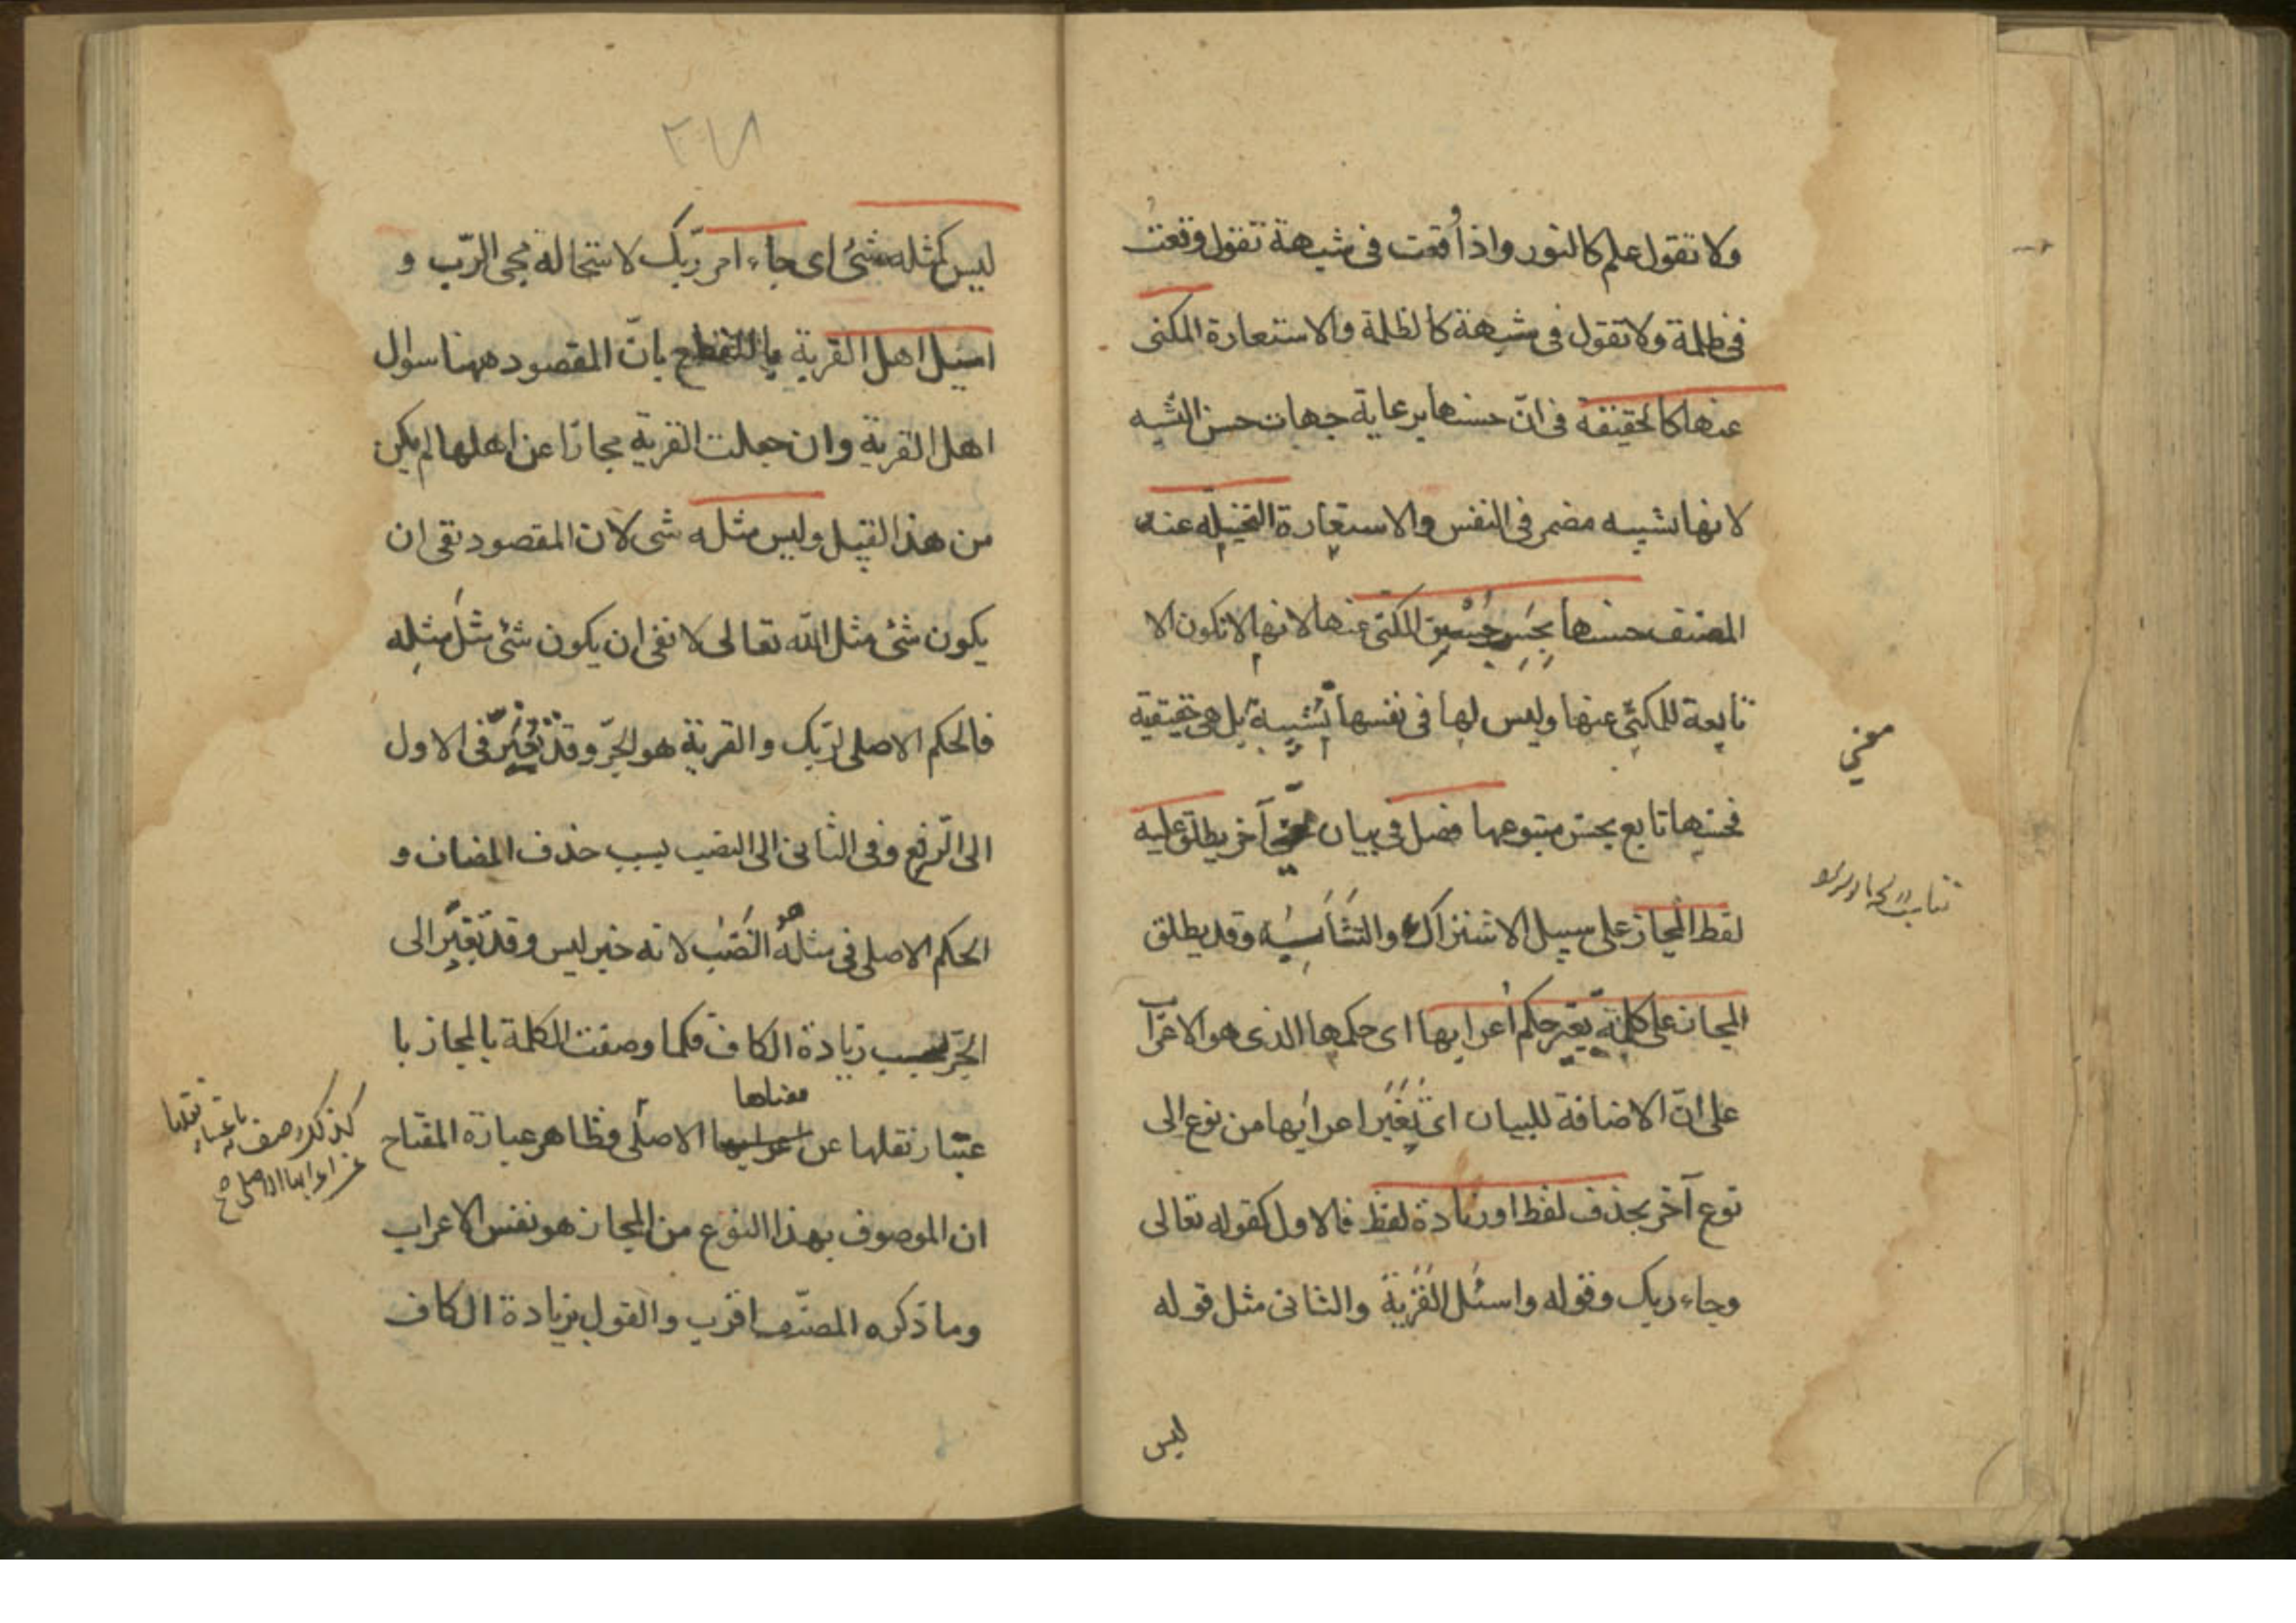 ولا تقول علم كالنور واذا وقعت فى شبهة تقول وقعت
فى ظلمة ولا تقول فى شبهة كالظلمة والاستعارة المكنى
عنها كالحقيقة فى انّ حسنها برعاية جهات حسن التشبيه
لانها تشبيه مضمر فى النفس والاستعارة التخييلية عند
المصنف حسنها بحسب حسن المكنى عنها لانها لا تكون الا
تابعة للمكنى عنها وليس لها فى نفسها تشبيه بل هى حقيقية
فحسنها تابع بحسن متبوعها فصل فى بيان معنى آخر يطلق عليه
معنى
لفظ المجاز على سبيل الاشتراك والتشابه وقد يطلق
المجاز على كلمة تغير حكم اعرابها اى حكمها الذى هو الاعراب
على انّ الاضافة للبيان اى تغير اعرابها من نوع الى
نوع آخر بحذف لفظ او زيادة لفظ فالاول كقوله تعالى
وجاء ربك وقوله واسئل القرية والثانى مثل قوله
ليس
٢٧٨
ليس كمثله شئ اى جاء امر ربّك لاستحالة مجئ الرّب و
اسئل اهل القرية للقطع بانّ المقصود ههنا سوال
اهل القرية وان جعلت القرية مجازا عن اهلها لم يكن
من هذا القبيل وليس مثله شى لان المقصود نفى ان
يكون شئ مثل الله تعالى لا نفى ان يكون شئ مثل مثله
فالحكم الاصلى لربّك والقرية هو الجرّ وقد تغيّر فى الاول
الى الرفع وفى الثانى الى النصب بسبب حذف المضاف و
الحكم الاصلى فى مثله هو النصب لانه خبر ليس وقد تغيّر الى
الجرّ بسبب زيادة الكاف فكما وصفت الكلمة بالمجاز با
عتبار نقلها عن معناها الاصلى فظاهر عبارة المفتاح
كذلك وصفت به باعتبار نقلها
عن اعرابها الاصلى صح
ان الموصوف بهذا النوع من المجاز هو نفس الاعراب
وما ذكره المصنّف اقرب والقول بزيادة الكاف